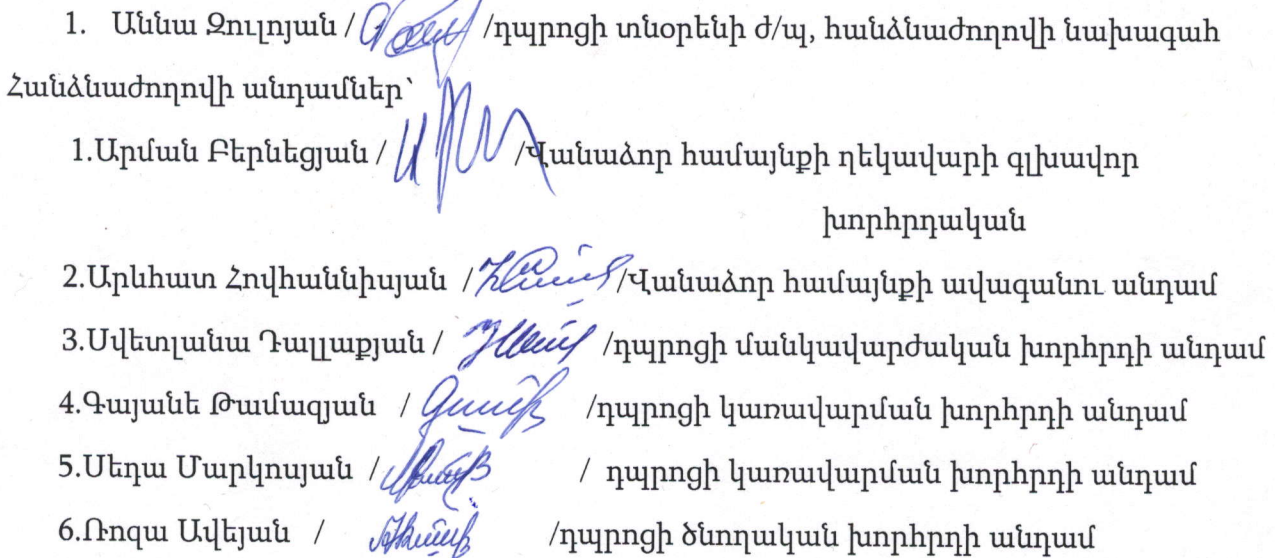 1. Աննա Զուլոյան / /դպրոցի տնօրենի ժ/պ, հանձնաժողովի նախագահ
Հանձնաժողովի անդամներ՝
1.Արման Բերնեցյան / /Վանաձոր համայնքի ղեկավարի գլխավոր
խորհրդական
2.Արևհատ Հովհաննիսյան / /Վանաձոր համայնքի ավագանու անդամ
3.Սվետլանա Դալլաքյան / /դպրոցի մանկավարժական խորհրդի անդամ
4.Գայանե Թամազյան / /դպրոցի կառավարման խորհրդի անդամ
5.Սեդա Մարկոսյան / / դպրոցի կառավարման խորհրդի անդամ
6.Ռոզա Ավեյան / /դպրոցի ծնողական խորհրդի անդամ